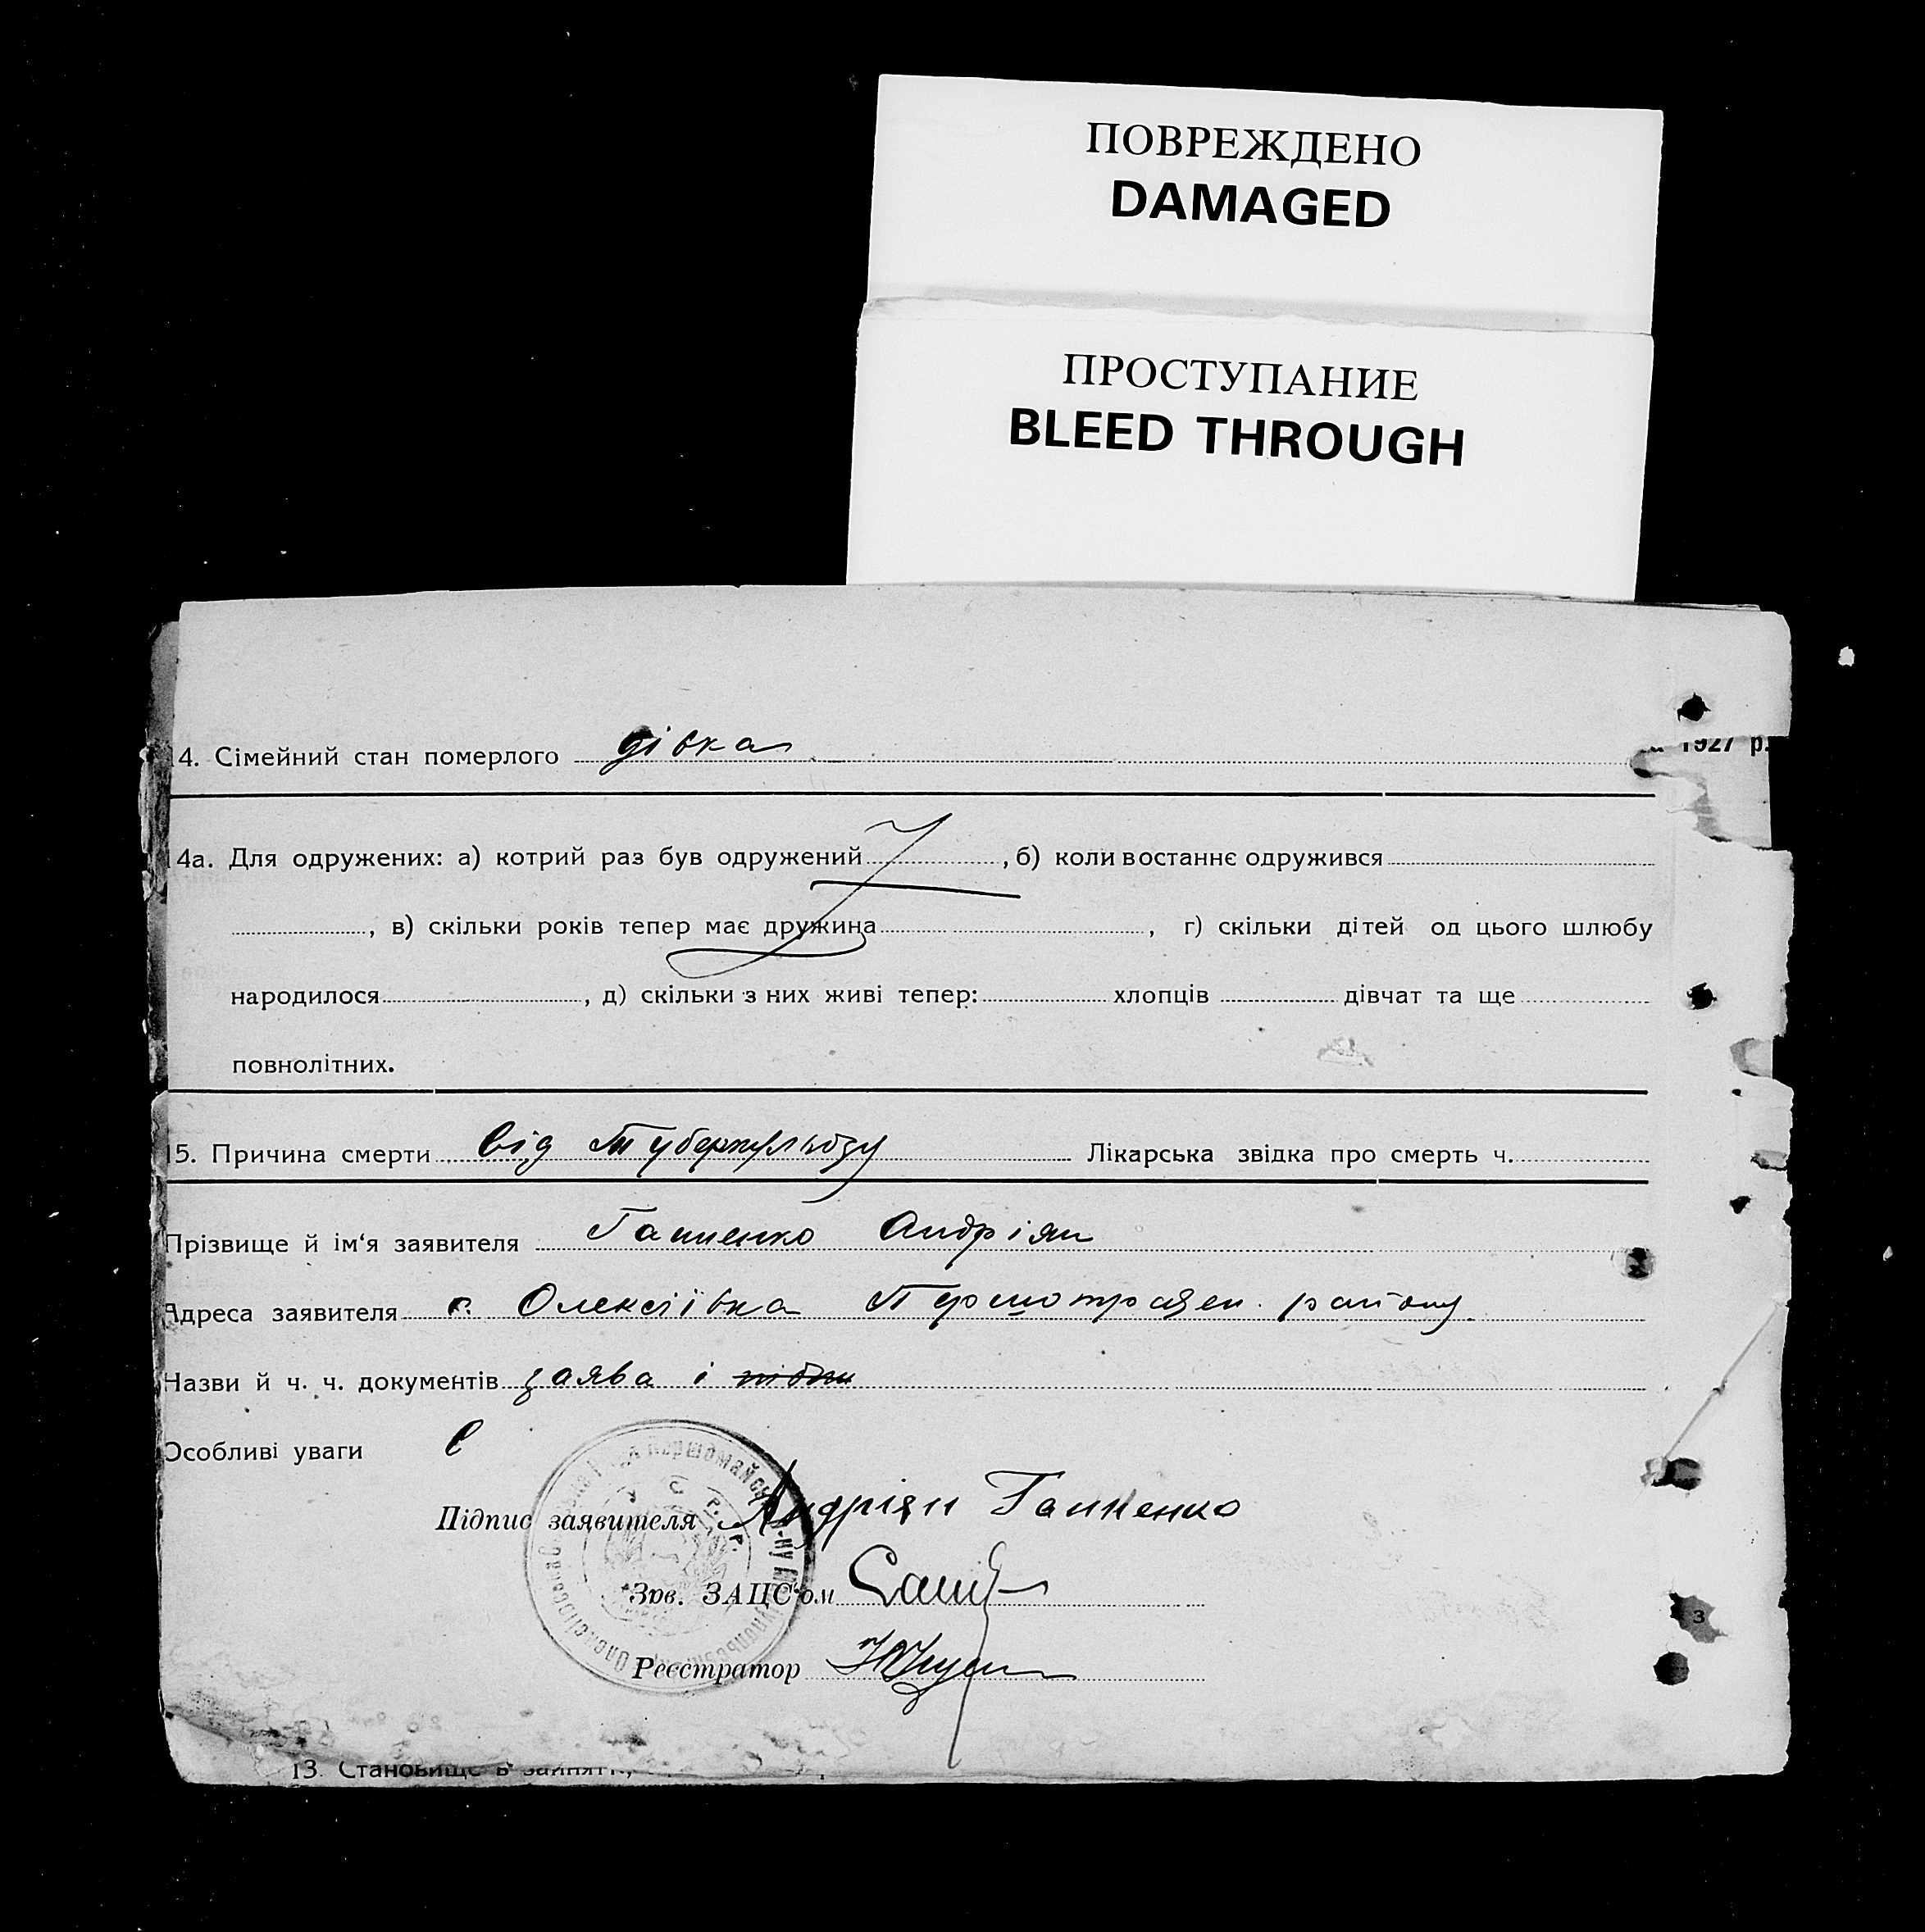 ПОВРЕЖДЕНО
DAMAGED
ПРОСТУПАНИЕ
BLEED THROUGH
1927 р.
14. Сімейний стан померлого дівка
14а. Для одружених: а) котрий раз був одружений, б) коли востаннє одружився
, в) скільки років тепер має дружина, г) скільки дітей од цього шлюбу
народилося, д) скільки з них живі тепер: хлопців дівчат та ще
повнолітних.
15. Причина смерти від туберкульозу Лікарська звідка про смерть ч.
Прізвище й ім‘я заявителя Гапненко Андріян
Адреса заявителя с. Олексіївка Першотравен. району
Назви й ч. ч. документів заява і
Особливі уваги
У. С. Р. Р.
Підпис заявителя Андріян Гапненко
Зав. ЗАЦС‘ом
Реєстратор
3
13. Становище в занятті,